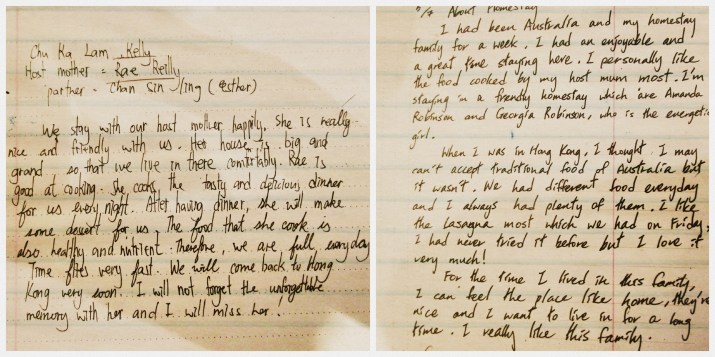 Chu Ka Lam, Kelly
Host mother = Rae Reilly
partner - Chan Sin Ying (Esther)
We stay with our host mother happily. She is really
nice and friendly with us. Her house is big and
grand so that we live in there comfortably. Rae is
good at cooking. She cooks the tasty and delicious dinner
for us every night. After having dinner, she will make
some desert for us. The food that she cook is
also healthy and nutrient. Therefore, we are full everyday
Time flies very fast. We will come back to Hong
Kong very soon. I will not forget the unforgettable
memory with her and I will miss her!
About Homestay
I had been Australia and my homestay
family for a week. I had an enjoyable and
a great time staying here. I personally like
the food cooked by my host mum most. I'm
staying in a friendly homestay which are Amanda
Robinson and Georgia Robinson, who is the energetic
girl.
When I was in Hong Kong, I thought I may
can't accept traditional food of Australia but
it wasn't. We had different food everyday
and I always had plenty of them. I like
the Lasagna most which we had on Friday,
I had never tried it before but I love it
very much!
For the time I lived in this family,
I can feel the place like home, they're
nice and I want to live in for a long
time. I really like this family.